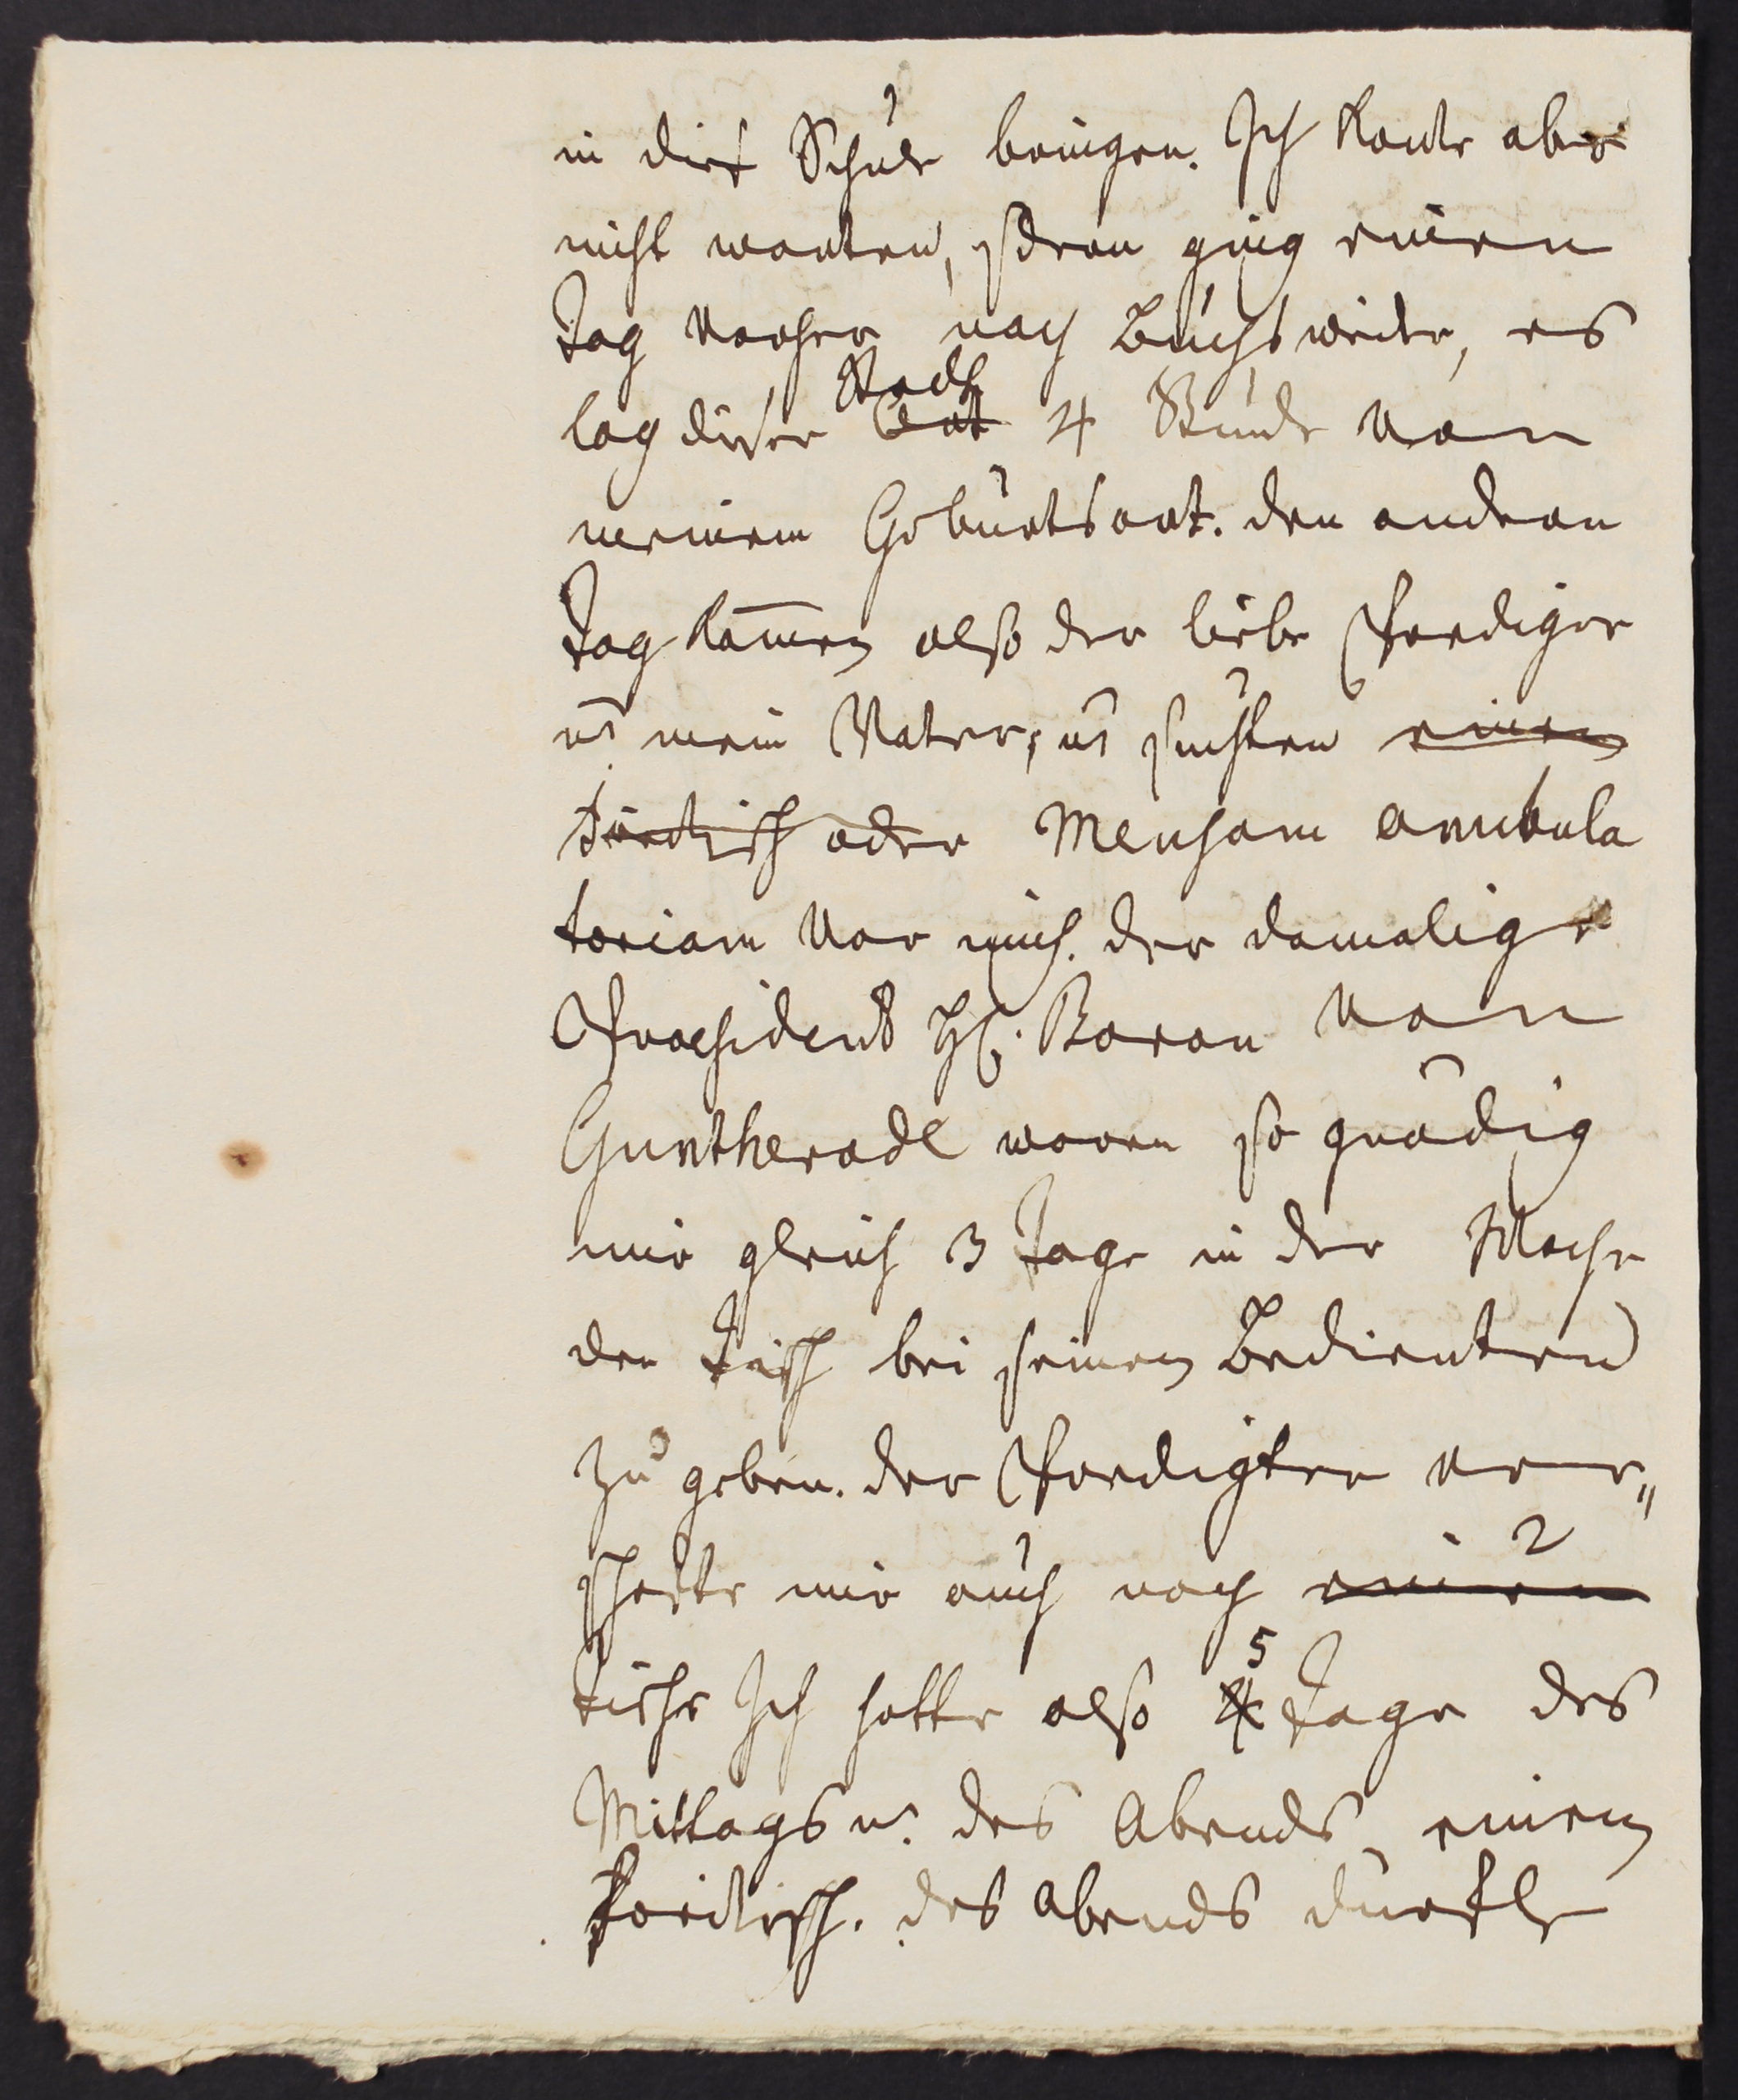 in dies Schule bringen. Ich konte aber
nicht warten, sdern ging einen
Tag vorher nach Buchsweiler, es
lag dieser Stadt Ort 4 Stunde von
meinem Geburtsort. den andern
Tag kam̅en also der liebe Prediger
u. mein Vater, u. suchten einen
Freitisch oder Mensam ambula
toriam vor mich. der damalige
Praesident H. Baron von
Guntherode waren so gnädig
mir gleich 3 Tage in der Woche
den Tisch bei seinen Bedienten
zu geben. der Predigter ver„
schafte mir auch noch einen 2
Tische Ich hatte also 4 5 Tage des
Mittags u. des Abends einen
Freitisch. des Abends durfte